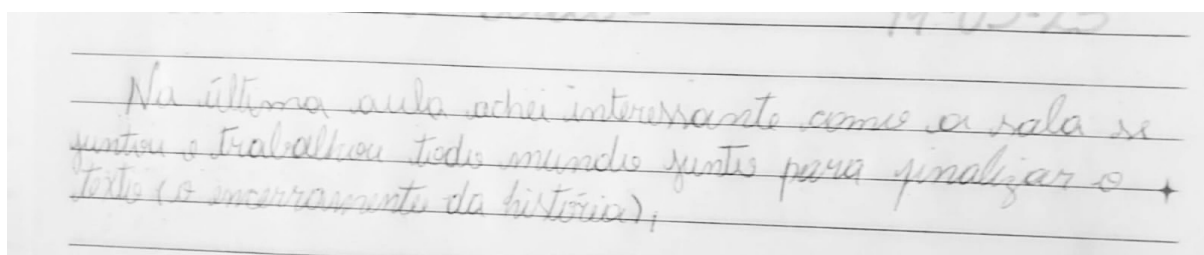 19-05-23
Na última aula achei interessante como a sala se
juntou e trabalhou todo mundo junto para finalizar o
texto (o encerramento da história),